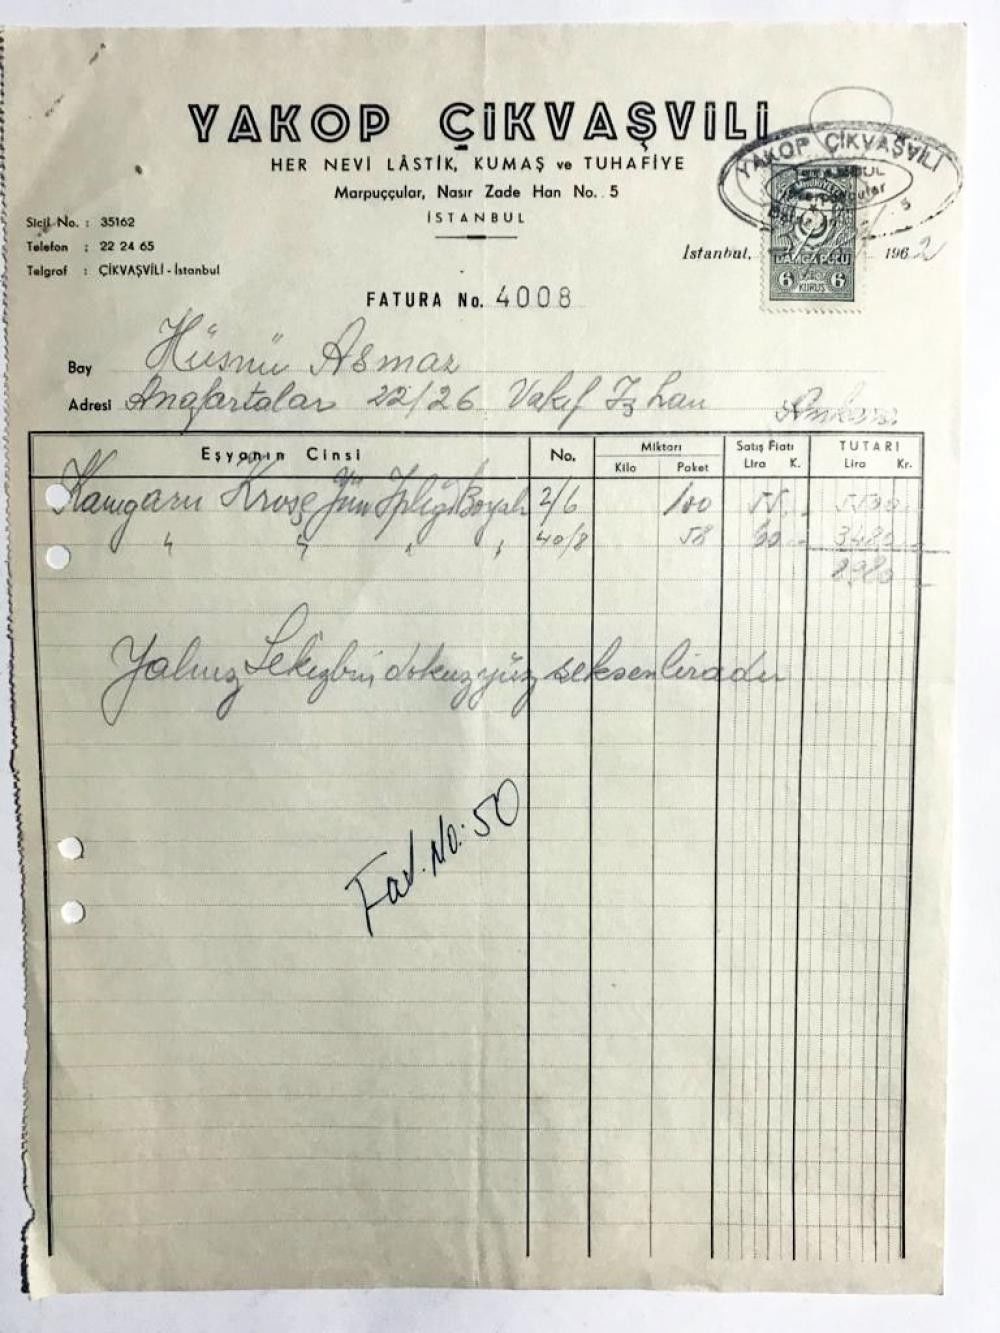 YAKOP ÇİKVAŞVİLİ
HER NEVİ LÂSTİK, KUMAŞ ve TUHAFİYE
Marpuççular, Nasır Zade Han No. 5
İSTANBUL
Sicil No. : 35162
Telefon : 22 24 65
Telgraf : ÇİKVAŞVİLİ - İstanbul
YAKOP ÇİKVAŞVİLİ
DAMGA PULU
6 KURUŞ 6
İstanbul, 1962
FATURA No. 4008
Bay Hüsnü Asmaz
Adresi Anafartalar 22/26 Vakıf İş han Ankara
Eşyanın Cinsi No. Miktarı Satış Fiatı TUTARI
Kilo Paket Lira K. Lira Kr.
Kamgarn Kroşe Yün İpliği Boyalı 2/6 100 55 5500
" " " " 40/8 58 60 3480
8980
Yalnız Sekizbin dokuzyüz seksenliradır
Fat. No: 50